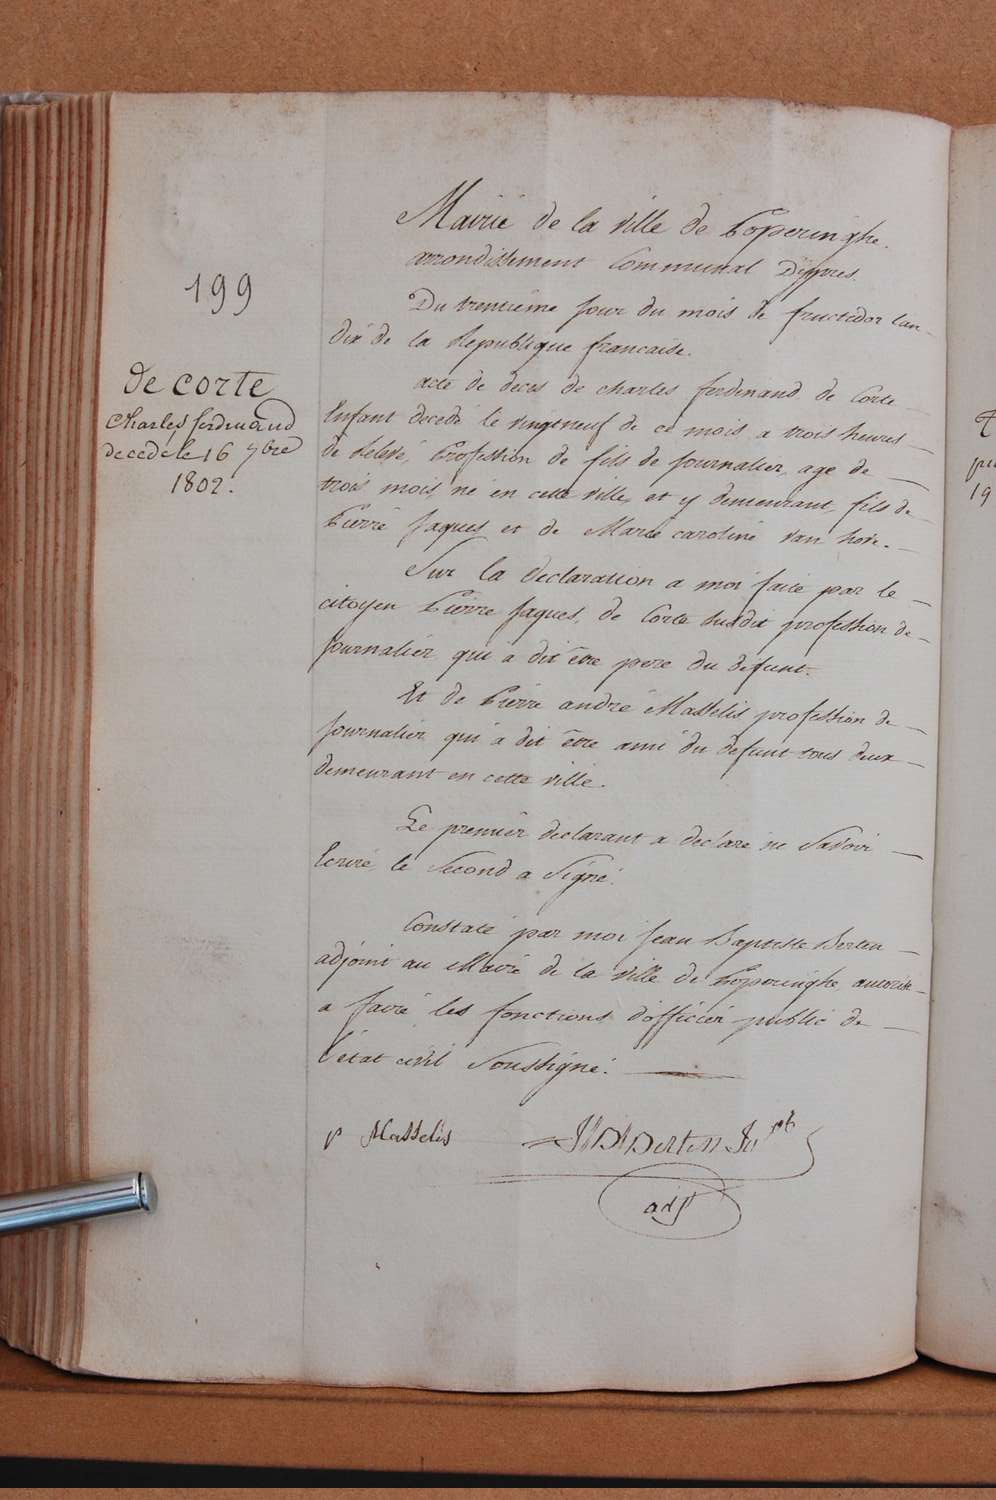 199
de corte
Charles ferdinand
decede le 16 7bre
1802.
Mairie de la ville de Poperinghe.
arrondissement Communal Dÿpres.
Du trentieme jour du mois de fructidor lan
Dix de la Republique francaise.
acte de deces de charles ferdinand de Corte
Enfant decedé le vingtneuf de ce mois a trois heures
de Relevé, Profession de fils de journalier, age de
trois mois né en cette ville, et y demeurant, fils de
Pierre Jaques et de Marie caroline van hove.
Sur la declaration a moi faite par le
citoyen Pierre Jaques, de Corte susdit profession de
journalier, qui a dit être pere du defunt.
Et de Pierre andré Masselis profession de
journalier qui a dit être ami du defunt tous deux
demeurant en cette ville.
Le premier declarant a declaré ne savoir
Ecrire, le second a Signé.
Constaté par moi Jean Baptiste Berten
adjoint au Maire de la ville de Poperinghe, autorisé
a faire les fonctions d'officier public de
l'état civil Soussigné.
P Masselis
Berten
adjt